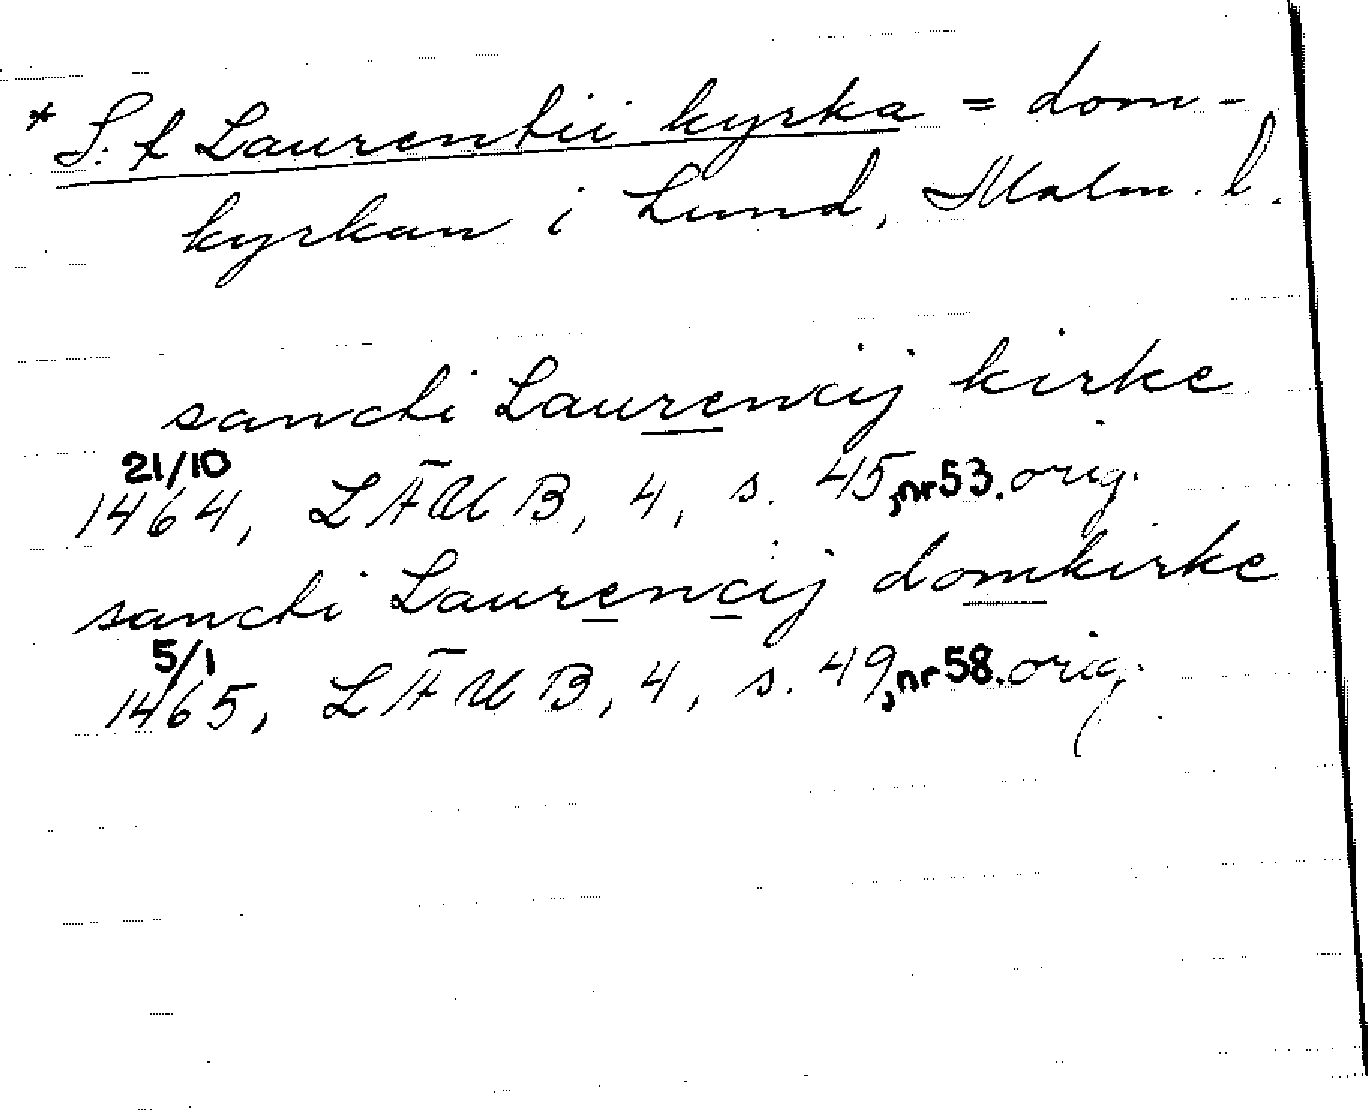 * S:t Laurentii kyrka = dom-
kyrkan i Lund, Malm. l.
sancti Laurencij kirke
21/10
1464, LÄUB, 4, s. 45, nr 53. orig.
sancti Laurencij domkirke
5/1
1465, LÄUB, 4, s. 49, nr 58. orig.